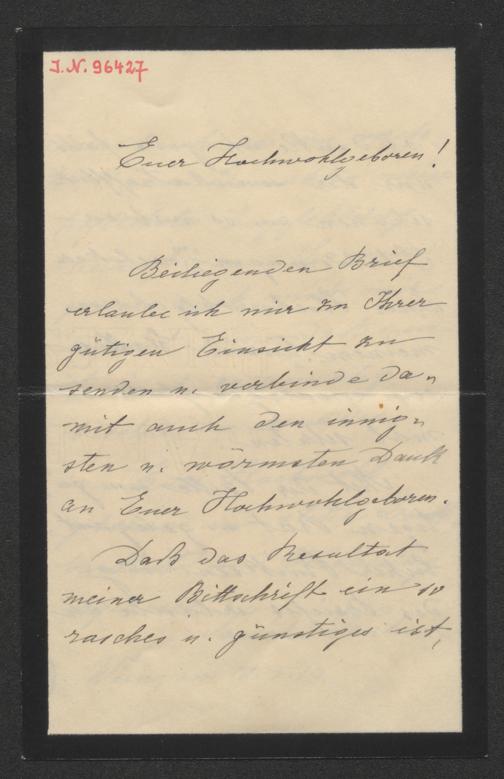 J.N. 96427
Euer Hochwohlgeboren!
Beiliegenden Brief
erlaube ich mir zn Ihrer
gütigen Einsicht zu
senden u. verbinde da„
mit auch den innig„
sten u. wärmsten Dank
an Euer Hochwohlgeboren.
Daß das Resultat
meiner Bittschrift ein so
rasches u. günstiges ist,